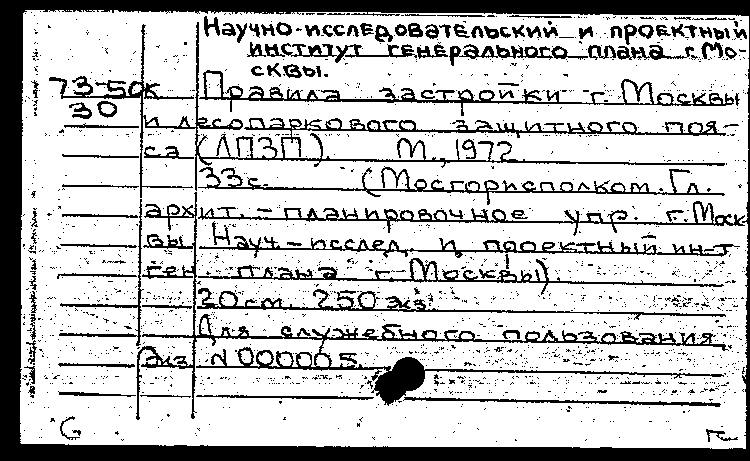 Научно-исследовательский и проектный
институт генерального плана г. Мо-
сквы.
73-50к Правила застройки г. Москвы
30 и лесопаркового защитного поя-
са (ЛПЗП). М., 1972.
33с. (Мосгорисполком. Гл.
архит.-планировочное упр. г. Моск-
вы. Науч.-исслед. и проектный ин-т
ген плана г. Москвы).
20 см. 250 экз.
Для служебного пользования.
Экз. N 000005.